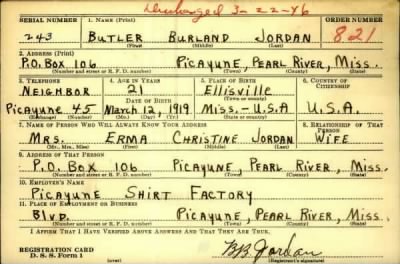 Discharged 3-22-46
SERIAL NUMBER 1. Name (Print) ORDER NUMBER
243 BUTLER BURLAND JORDAN 821
(First) (Middle) (Last)
2. Address (Print)
P.O. BOX 106 PICAYUNE, PEARL RIVER, MISS.
(Number and street or R. F. D. number) (Town) (County) (State)
3. Telephone 4. Age in Years 5. Place of Birth 6. Country of Citizenship
NEIGHBOR 21 Ellisville
Date of Birth (Town or county)
PICAYUNE 45 MARCH 12, 1919 MISS.-USA U.S.A.
(Exchange) (Number) (Mo.) (Day) (Yr.) (State or country)
7. Name of Person Who Will Always Know Your Address 8. Relationship of That Person
MRS. ERMA CHRISTINE JORDAN WIFE
(Mr., Mrs., Miss) (First) (Middle) (Last)
9. Address of That Person
P.O. BOX 106 PICAYUNE, PEARL RIVER, MISS.
(Number and street or R. F. D. number) (Town) (County) (State)
10. Employer's Name
PICAYUNE SHIRT FACTORY
11. Place of Employment or Business
BLVD. PICAYUNE, PEARL RIVER, MISS.
(Number and street or R. F. D. number) (Town) (County) (State)
I Affirm That I Have Verified Above Answers and That They Are True.
REGISTRATION CARD
D. S. S. Form 1 BB Jordan
(Registrant's signature)